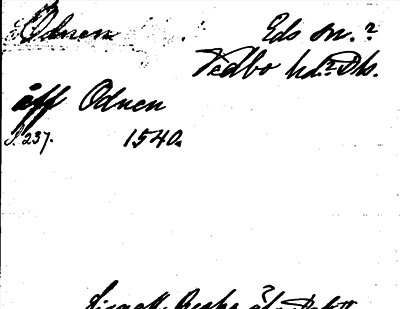 Odnen Eds sn.?
Vedbo hd? Dls.
åff Odnen
S. 237. 1540.